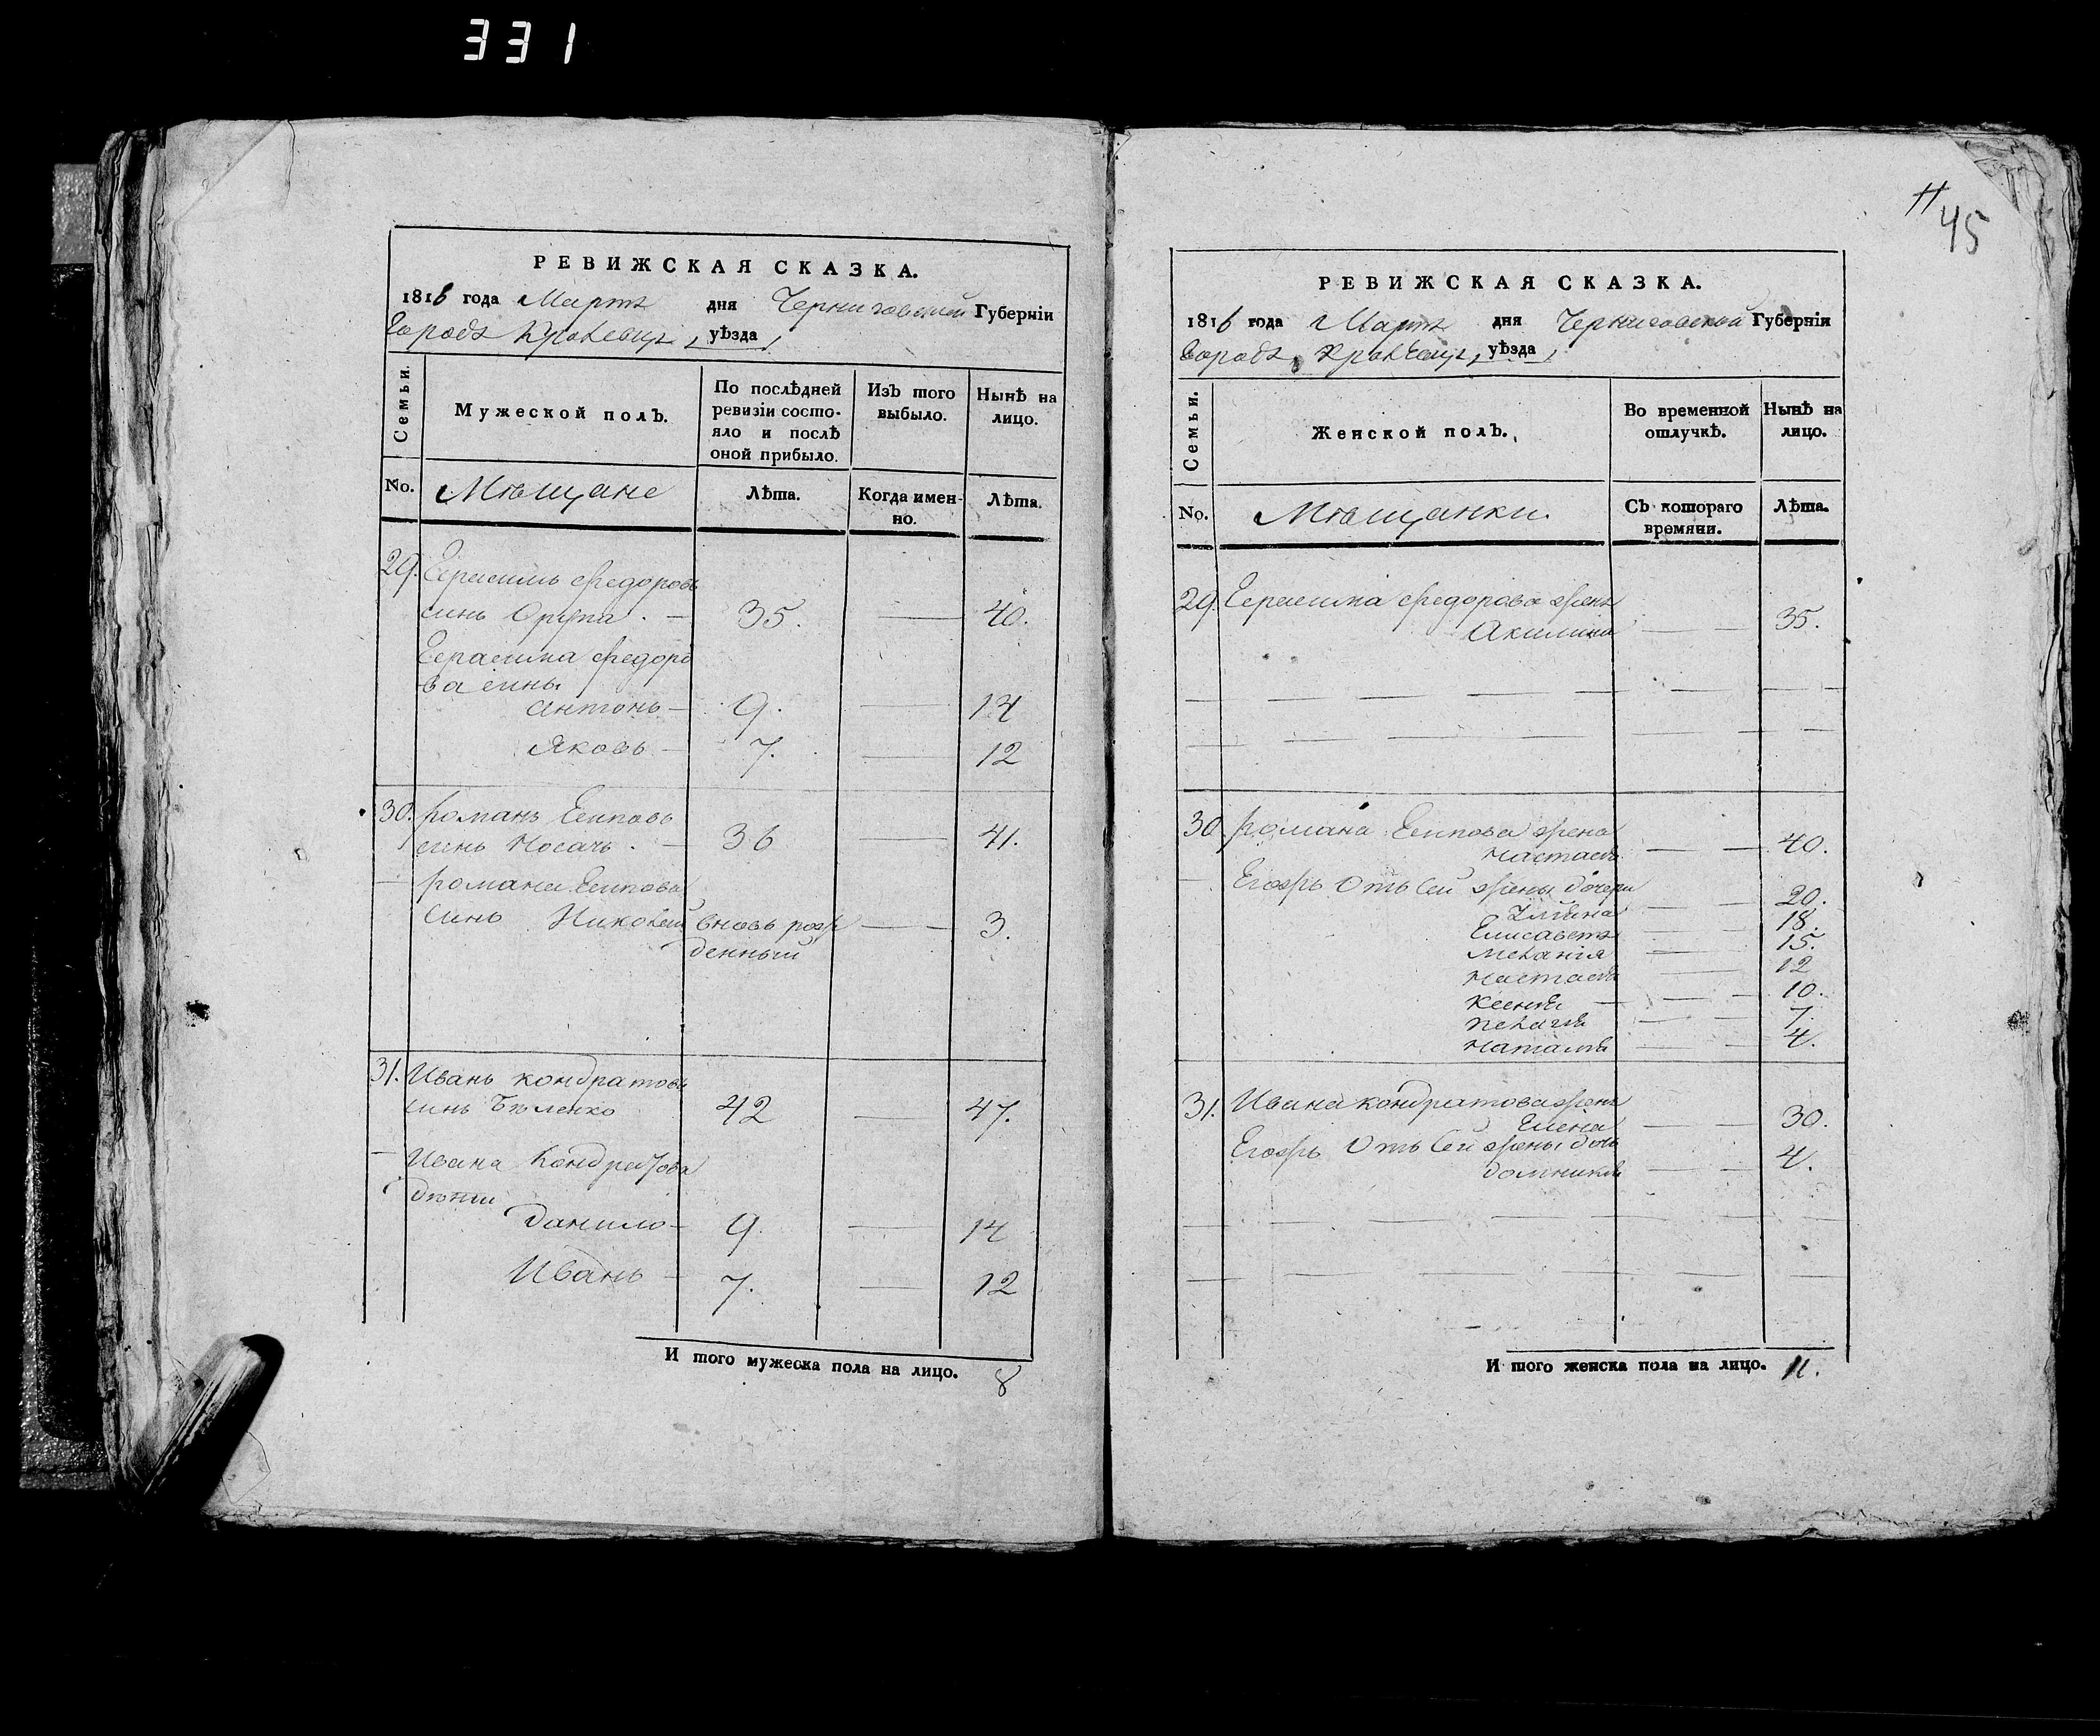 331
РЕВИЖСКАЯ СКАЗКА.
1816 года Марта дня Черниговской Губерніи
Города Кролевца, уѣзда
Семьи.
Мужеской полъ.
По послѣдней ревизіи состояло и послѣ оной прибыло.
Изъ того выбыло.
Нынѣ на лицо.
No.
Мѣщане
Лѣта.
Когда именно.
Лѣта.
29. Герасимъ Федоровъ
синъ 35. 40.
Герасима Федоро
ва сины
Антонъ 9. 14
Яковъ 7. 12
30. Романъ Есиповъ
синъ Носачъ 36 41.
Романа Есипова
Синъ Николай вновь рож
денный 3.
31. Иванъ Кондратовъ
синъ Бѣленко 42 47.
Ивана Кондратова
дѣти
Данило 9. 14
Иванъ 7. 12
И того мужеска пола на лицо. 8
11
45
РЕВИЖСКАЯ СКАЗКА.
1816 года Марта дня Черниговской Губерніи
Города Кролевца, уѣзда
Семьи.
Женской полъ.
Во временной отлучкѣ.
Нынѣ на лицо.
No.
Мѣщанки.
Съ котораго времяни.
Лѣта.
29. Герасима Федорова жена
Акилина 35.
30. Романа Есипова жена
Настасія 40.
Егожъ Отъ Сей жены дочери
20.
Елисавета 18.
Меланія 15.
Настасія 12
Ксенія 10.
Пелагія 7.
Наталія 4.
31. Ивана Кондратова жена
Елена 30.
Егожъ Отъ Сей жены дочь
Домникія 4.
И того женска пола на лицо. 11.